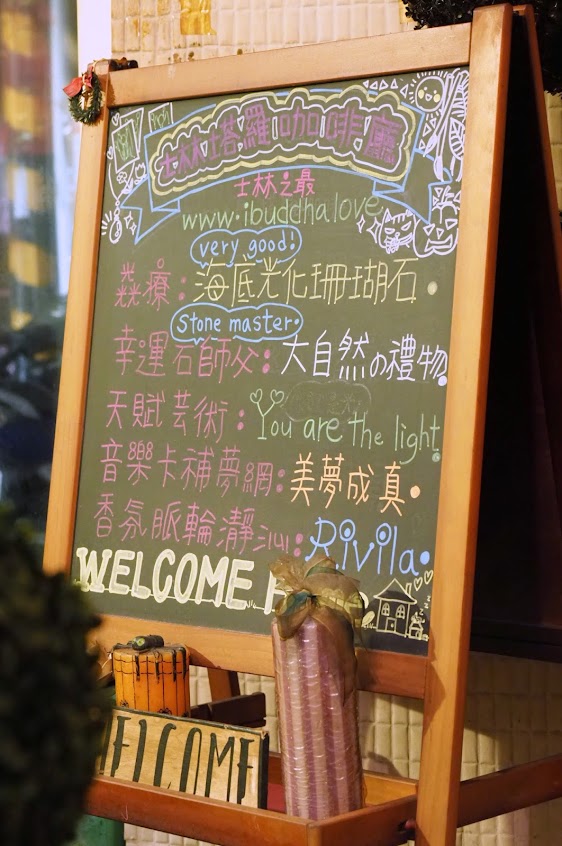 士林塔羅咖啡廳
士林之最
www.ibuddhalove
very good!
焱療：海底光化珊瑚石.
Stone master.
幸運石師父：大自然の禮物.
天賦芸術：You are the light.
音樂卡補夢網：美夢成真.
香氛脈輪瀞氿：Rivila.
WELCOME
WELCOME